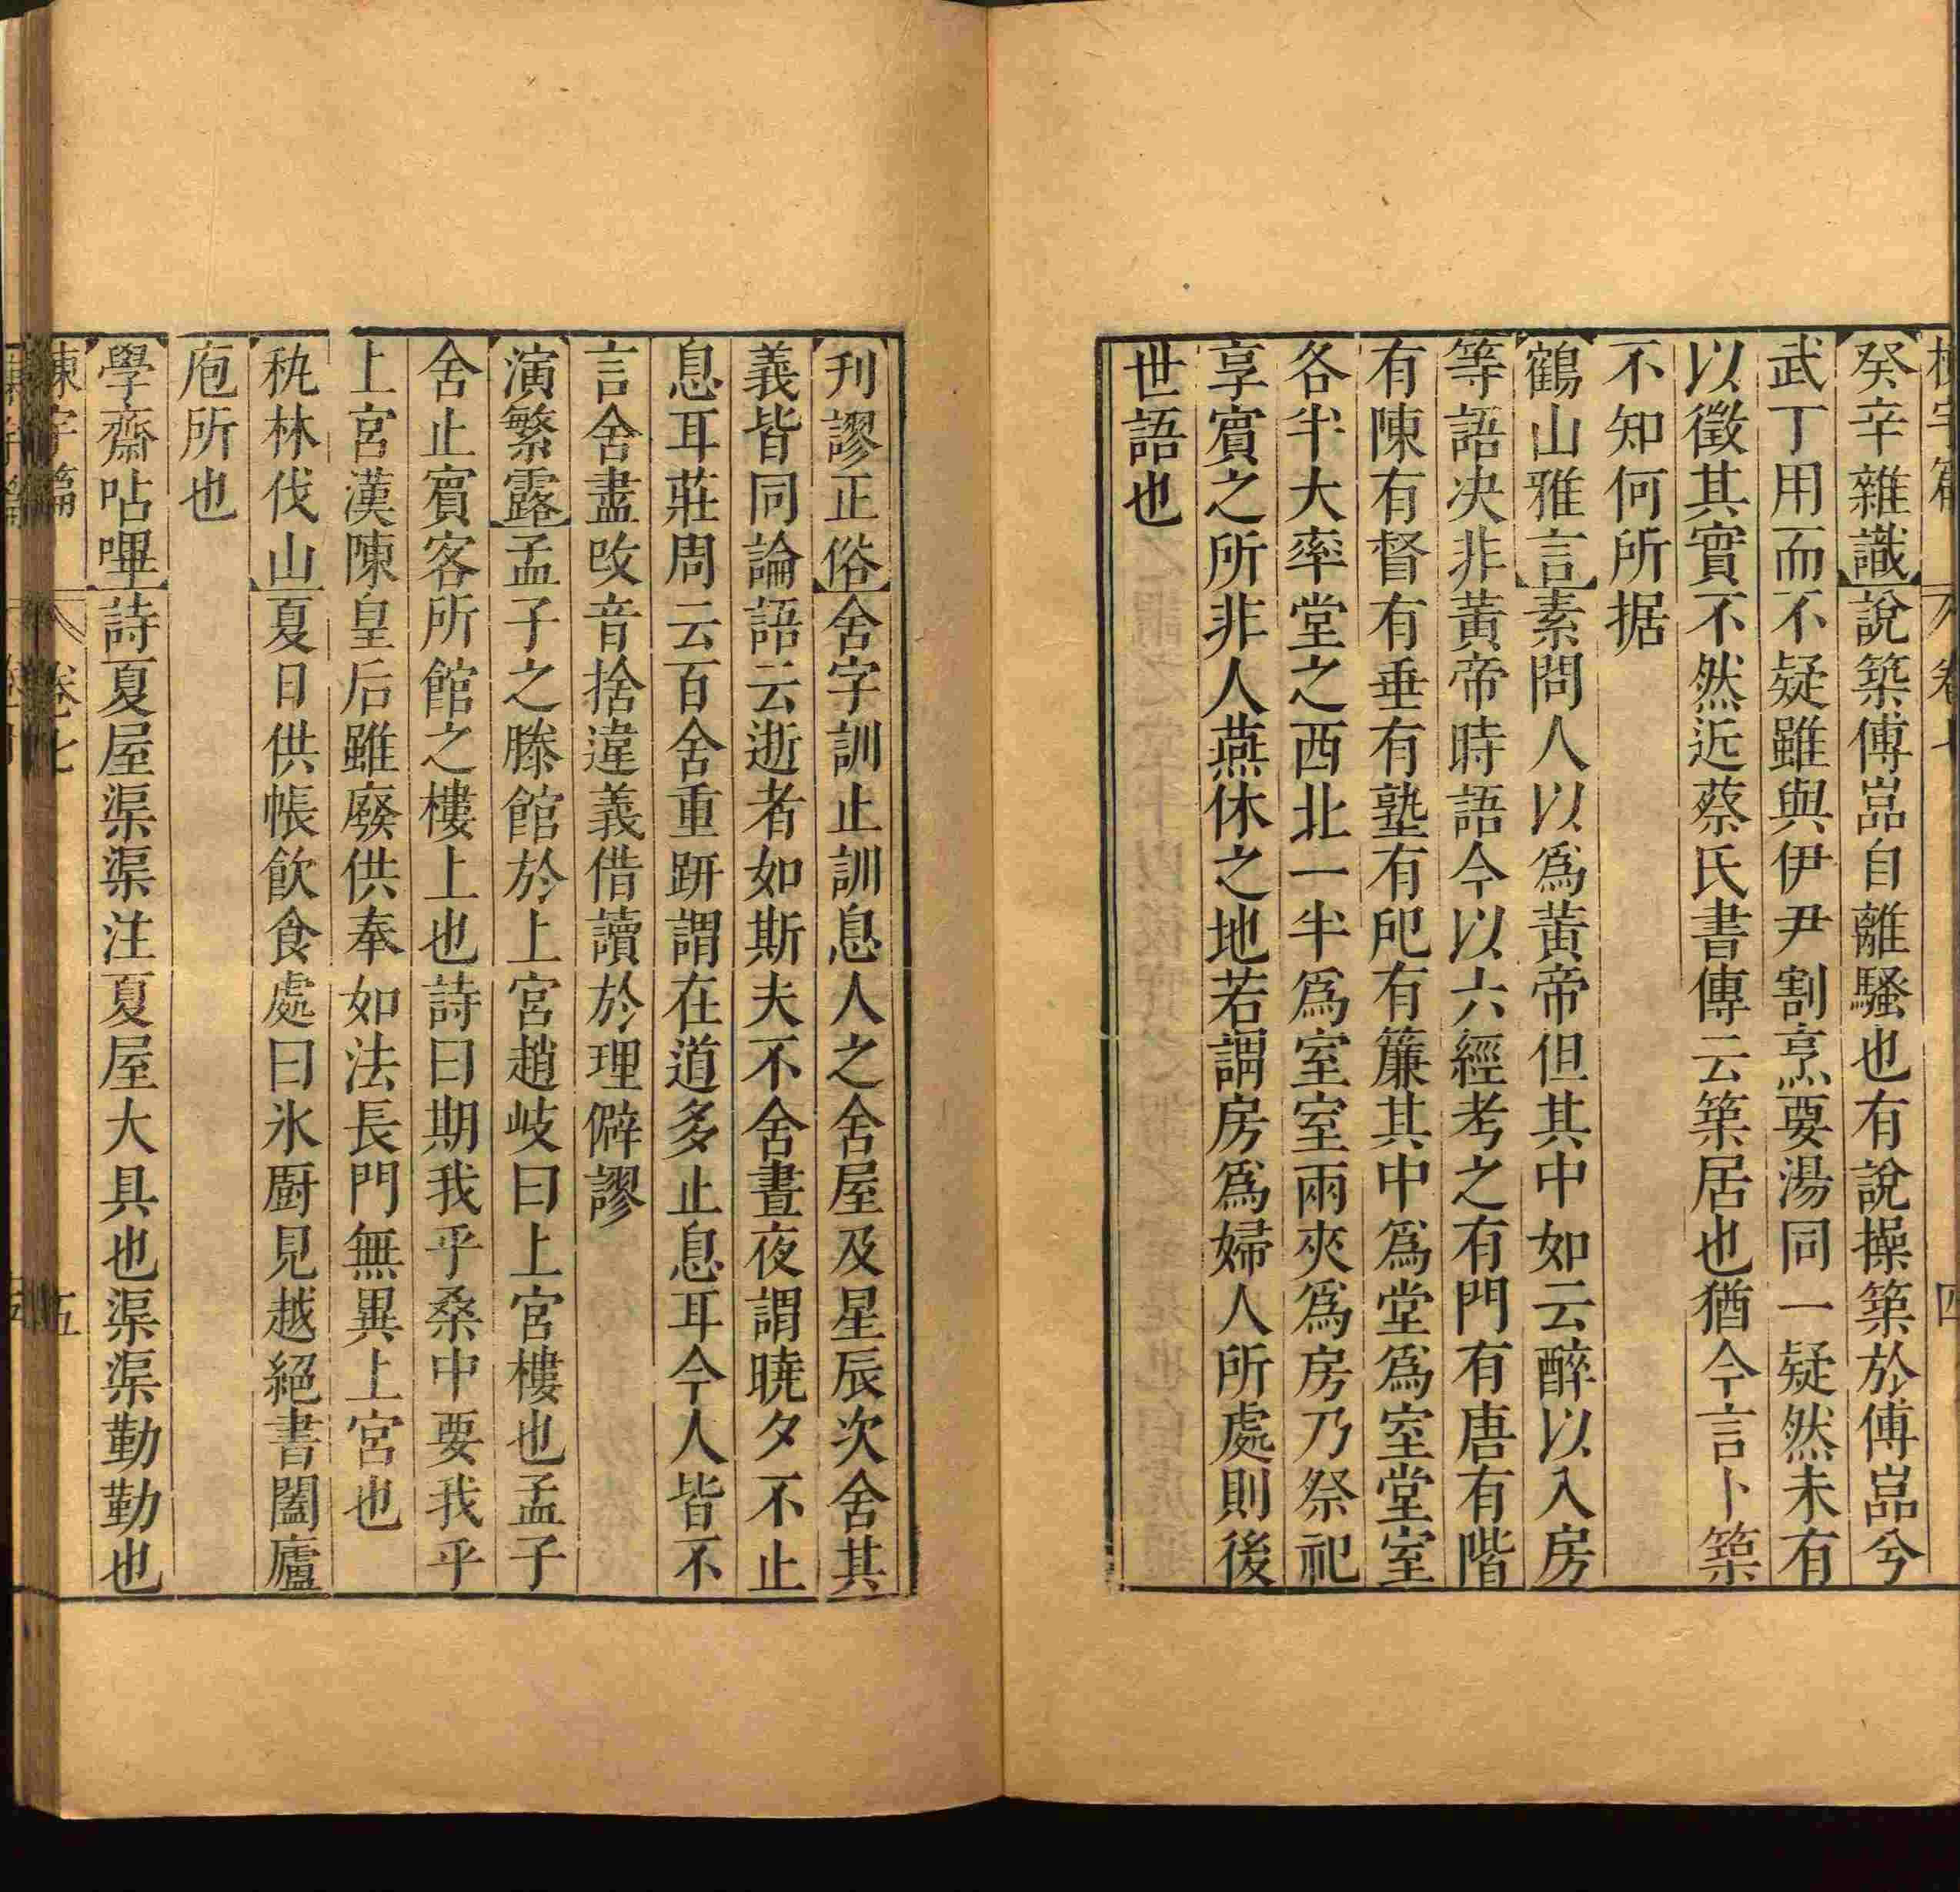 癸辛雜識說築傅嵓自離騷也有說操築於傅嵓兮
武丁用而不疑雖與伊尹割烹要湯同一疑然未有
以徵其實不然近蔡氏書傳云築居也猶今言卜築
不知何所据
鶴山雅言素問人以爲黃帝但其中如云醉以入房
等語决非黃帝時語今以六經考之有門有唐有階
有陳有督有垂有塾有戺有簾其中爲堂爲室堂室
各半大率堂之西北一半爲室室兩夾爲房乃祭祀
享賓之所非人燕休之地若謂房爲婦人所處則後
世語也
刊謬正俗舍字訓止訓息人之舍屋及星辰次舍其
義皆同論語云逝者如斯夫不舍晝夜謂曉夕不止
息耳莊周云百舍重趼謂在道多止息耳今人皆不
言舍盡改音捨違義借讀於理僻謬
演繁露孟子之滕館於上宮趙岐曰上宮樓也孟子
舍止賓客所館之樓上也詩曰期我乎桑中要我乎
上宮漢陳皇后雖廢供奉如法長門無異上宮也
秇林伐山夏日供帳飲食處曰氷厨見越絕書闔廬
庖所也
學齋呫嗶詩夏屋渠渠注夏屋大具也渠渠勤勤也
卷七
五